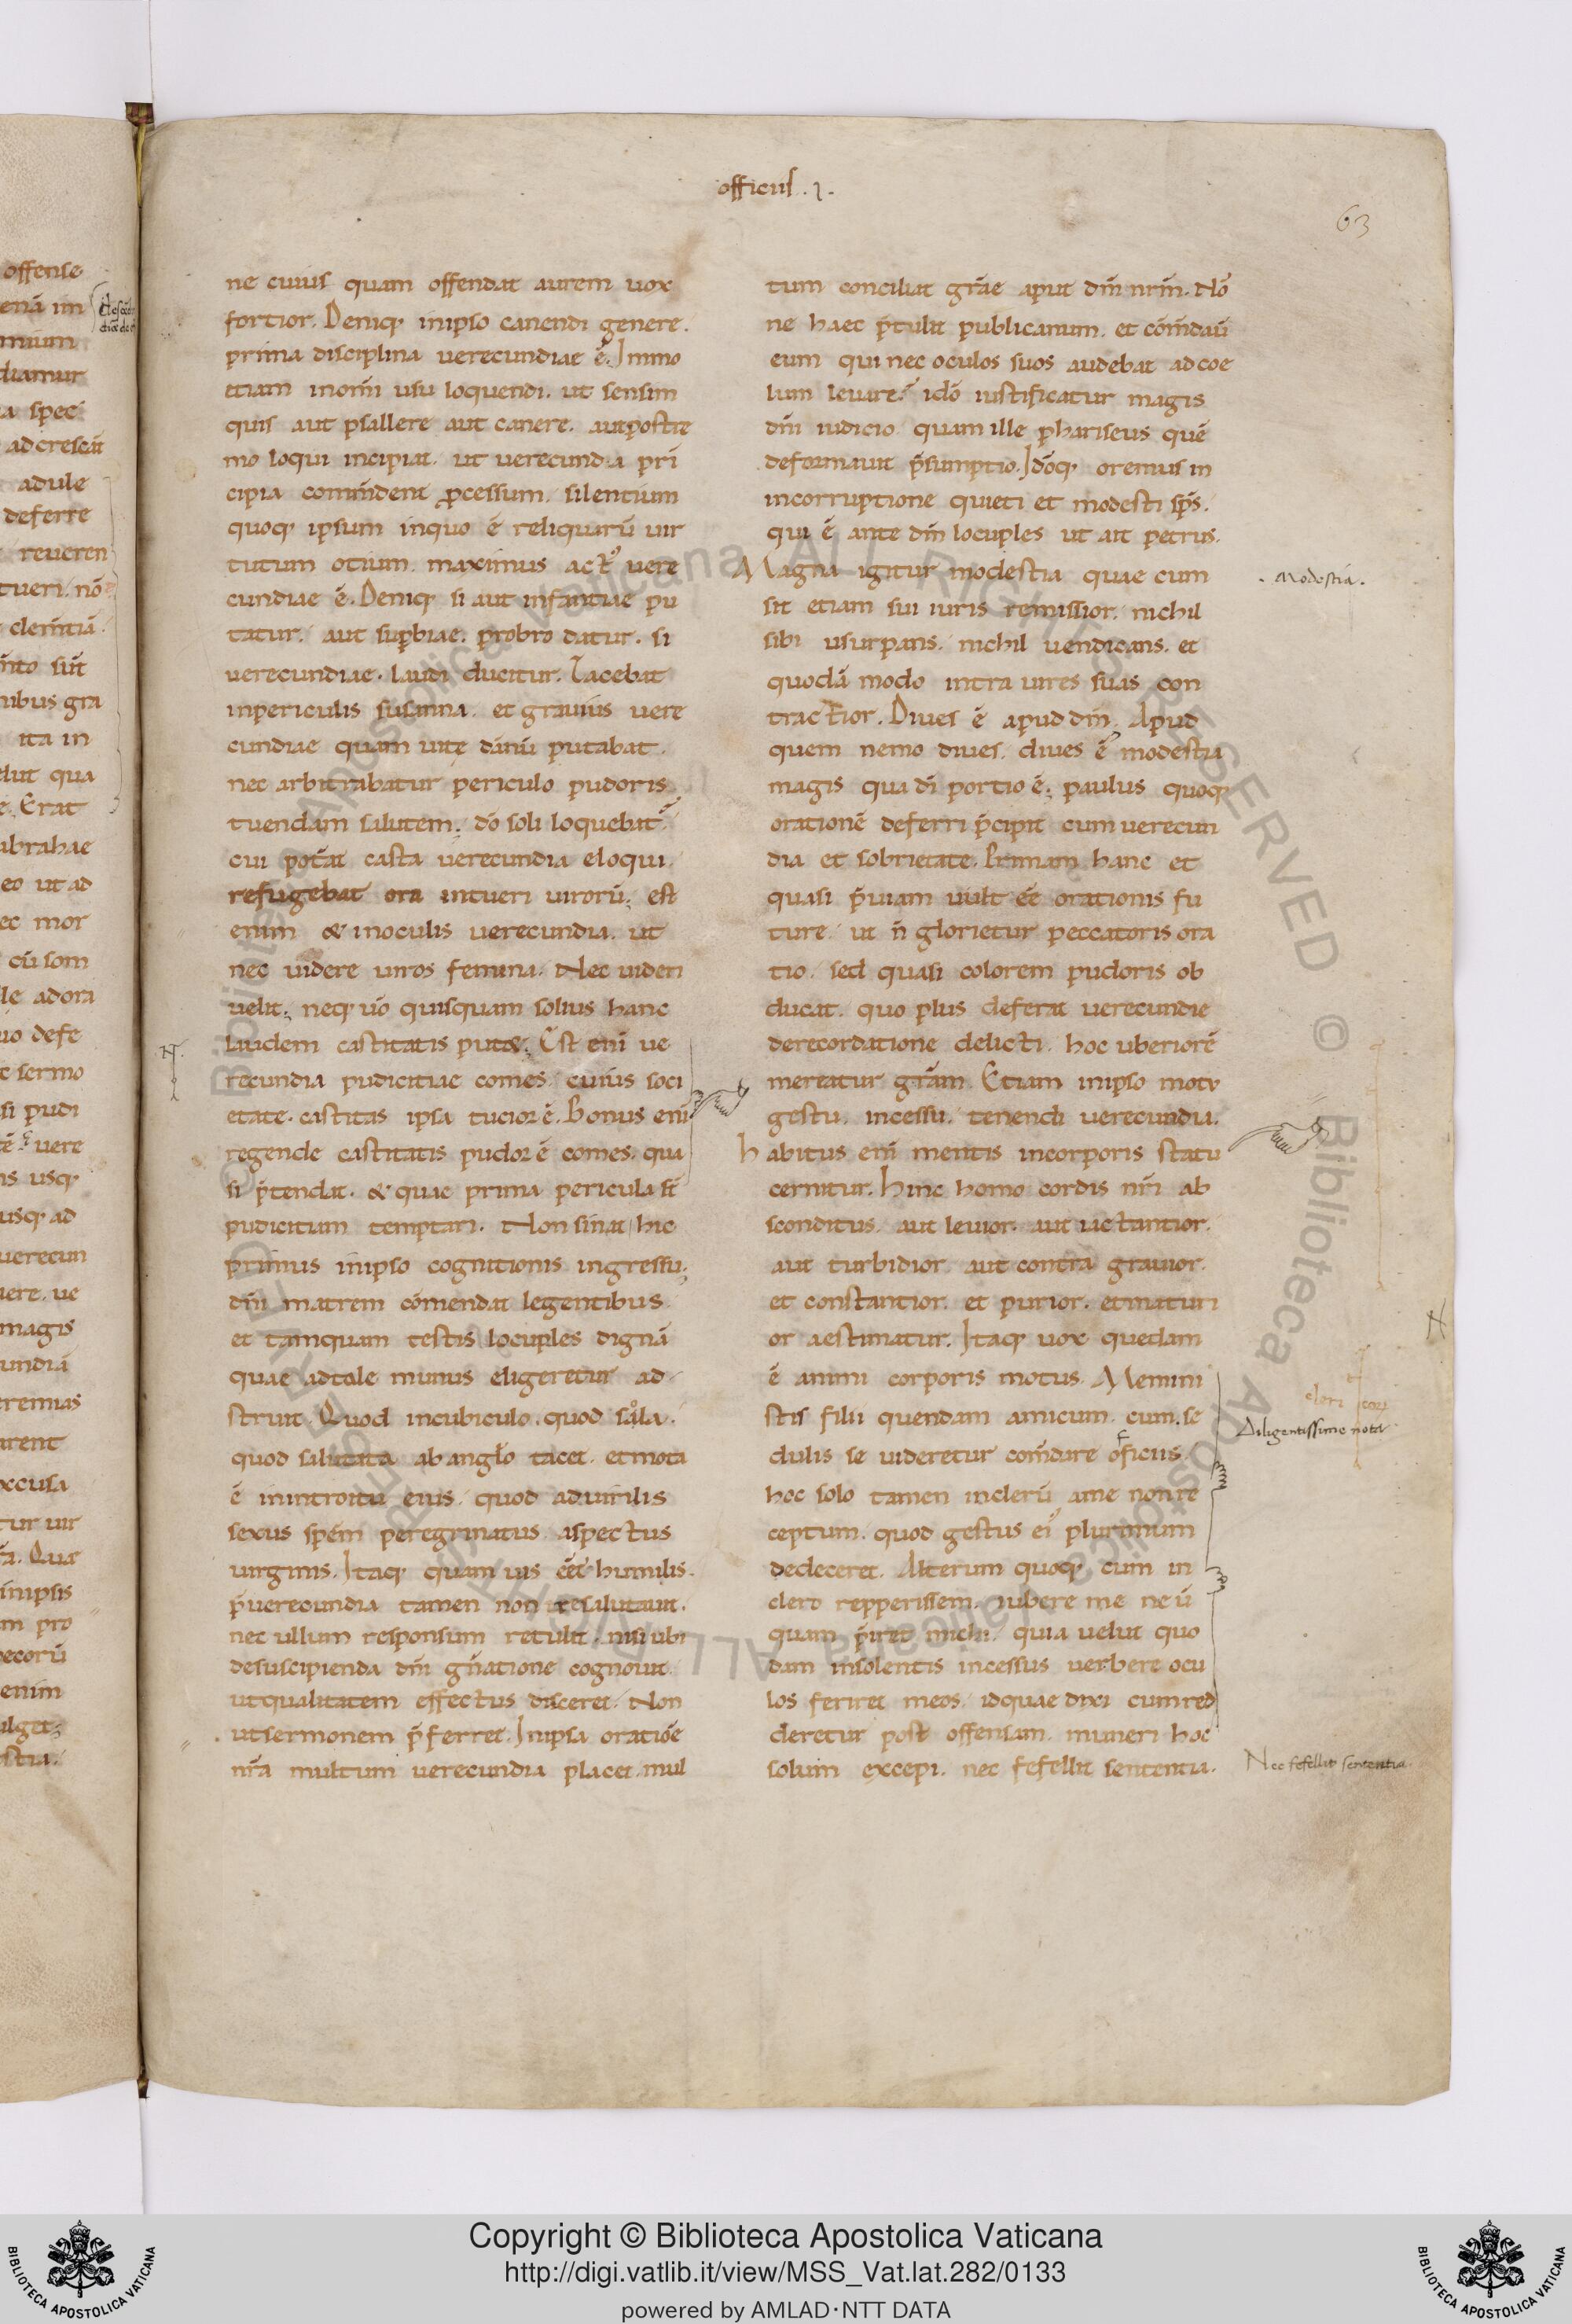 officiis .I.
63
ne cuius quam offendat aurem uox
fortior. Deniq; inipso canendi genere.
prima disciplina uerecundiae ē. Immo
etiam inom̄i usu loquendi. ut sensim
quis aut psallere aut canere. aut postre
mo loqui incipiat. ut uerecundia pri
cipia com̄dent ꝓcessum. silentium
quoq; ipsum inquo ē reliquarū uir
tutum otium. maximus actꝰ uere
cundiae ē. Deniq; si aut infantiae pu
tatur. aut suꝑbiae. probro datur. si
uerecundiae. laudi ducitur. Tacebat
inpericulis susanna. et grauius uere
cundiae quam uitę dānū putabat.
nec arbitrabatur periculo pudoris
tuendam salutem. dō soli loquebat᷑.
cui pot̄at casta uerecundia eloqui.
refugebat ora intueri uirorū. est
enim & inoculis uerecundia. ut
nec uidere uiros femina. Nec uideri
uelit. neq; uō quisquam solius hanc
laudem castitatis putæ. Est enī ue
recundia pudicitiae comes. cuius soci
etate. castitas ipsa tucior ē. Bonus enī
regende castitatis pudor ē comes. qua
si p̄tendat. & quae prima pericula st̄
pudicitiam temptari. Non sinat hic
primus inipso cognitionis ingressu.
dn̄i matrem cōmendat legentibus
et tamquam testis locuples dignā
quae adtale munus eligeretur ad
struit. Quod incubiculo. quod sola.
quod salutata ab anglo tacet. et mota
ē inintroitu eius. quod aduirilis
sexus spēm peregrinatus aspectus
uirginis. Itaq; quam uis eēt humilis.
p̄ uerecundia tamen non resalutauit.
nec ullum responsum retulit. nisi ubi
desuscipienda dn̄i gn̄atione cognouit.
utqualitatem effectus disceret. Non
utsermonem p̄ferret. Inipsa oratiōe
nr̄a multum uerecundia placet. mul
tum conciliat grāe aput dm̄ nrm̄. Nō
ne haec p̄tulit publicanum. et cōm̄dauī
eum qui nec oculos suos audebat ad coe
lum leuare. idō iustificatur magis
dn̄i iudicio quam ille phariseus quē
deformauit p̄sumptio. Idōq; oremus in
incorruptione quieti et modesti sp̄s.
qui ē ante dm̄ locuples ut ait petrus.
Magna igitur modestia quae cum
sit etiam sui iuris remissior. nichil
sibi usurpans. nichil uendicans. et
quodā modo intra uires suas con
tractior. Diues ē apud dm̄. Apud
quem nemo diues. diues ē modestia
magis qua dī portio ē. paulus quoq;
orationē deferri p̄cipit cum uerecun
dia et sobrietate. Primam hanc et
quasi p̄uiam uult eē orationis fu
ture. ut n̄ glorietur peccatoris ora
tio. sed quasi colorem pudoris ob
ducat. quo plus deferat uerecundie
derecordatione delicti. hoc uberiorē
mereatur grām. Etiam inipso motu
gestu. incessu. tenenda uerecundia.
habitus enī mentis incorporis statu
cernitur. Hinc homo cordis nr̄i ab
sconditus. aut leuior. aut iactantior.
aut turbidior. aut contra grauior.
et constantior. et purior. etmaturi
or aestimatur. Itaq; uox quedam
ē animi corporis motus. Memini
stis filii quendam amicum. cum se
dulis se uideretur com̄dare officiis.
hoc solo tamen inclerū ame nonre
ceptum. quod gestus eiꝰ plurimum
dedeceret. Alterum quoq; cum in
clero repperissem. iubere me ne ū
quam p̄iret michi. quia uelut quo
dam insolentis incessus uerbere ocu
los feriret meos. idquae dixi cumred
deretur post offensam. muneri hoc
solum excepi. nec fefellit sententia.
. Modestia.
Diligentissime nota
Nec fefellit sententia.
Copyright © Biblioteca Apostolica Vaticana
http://digi.vatlib.it/view/MSS_Vat.lat.282/0133
powered by AMLAD·NTT DATA
BIBLIOTECA APOSTOLICA VATICANA
BIBLIOTECA APOSTOLICA VATICANA